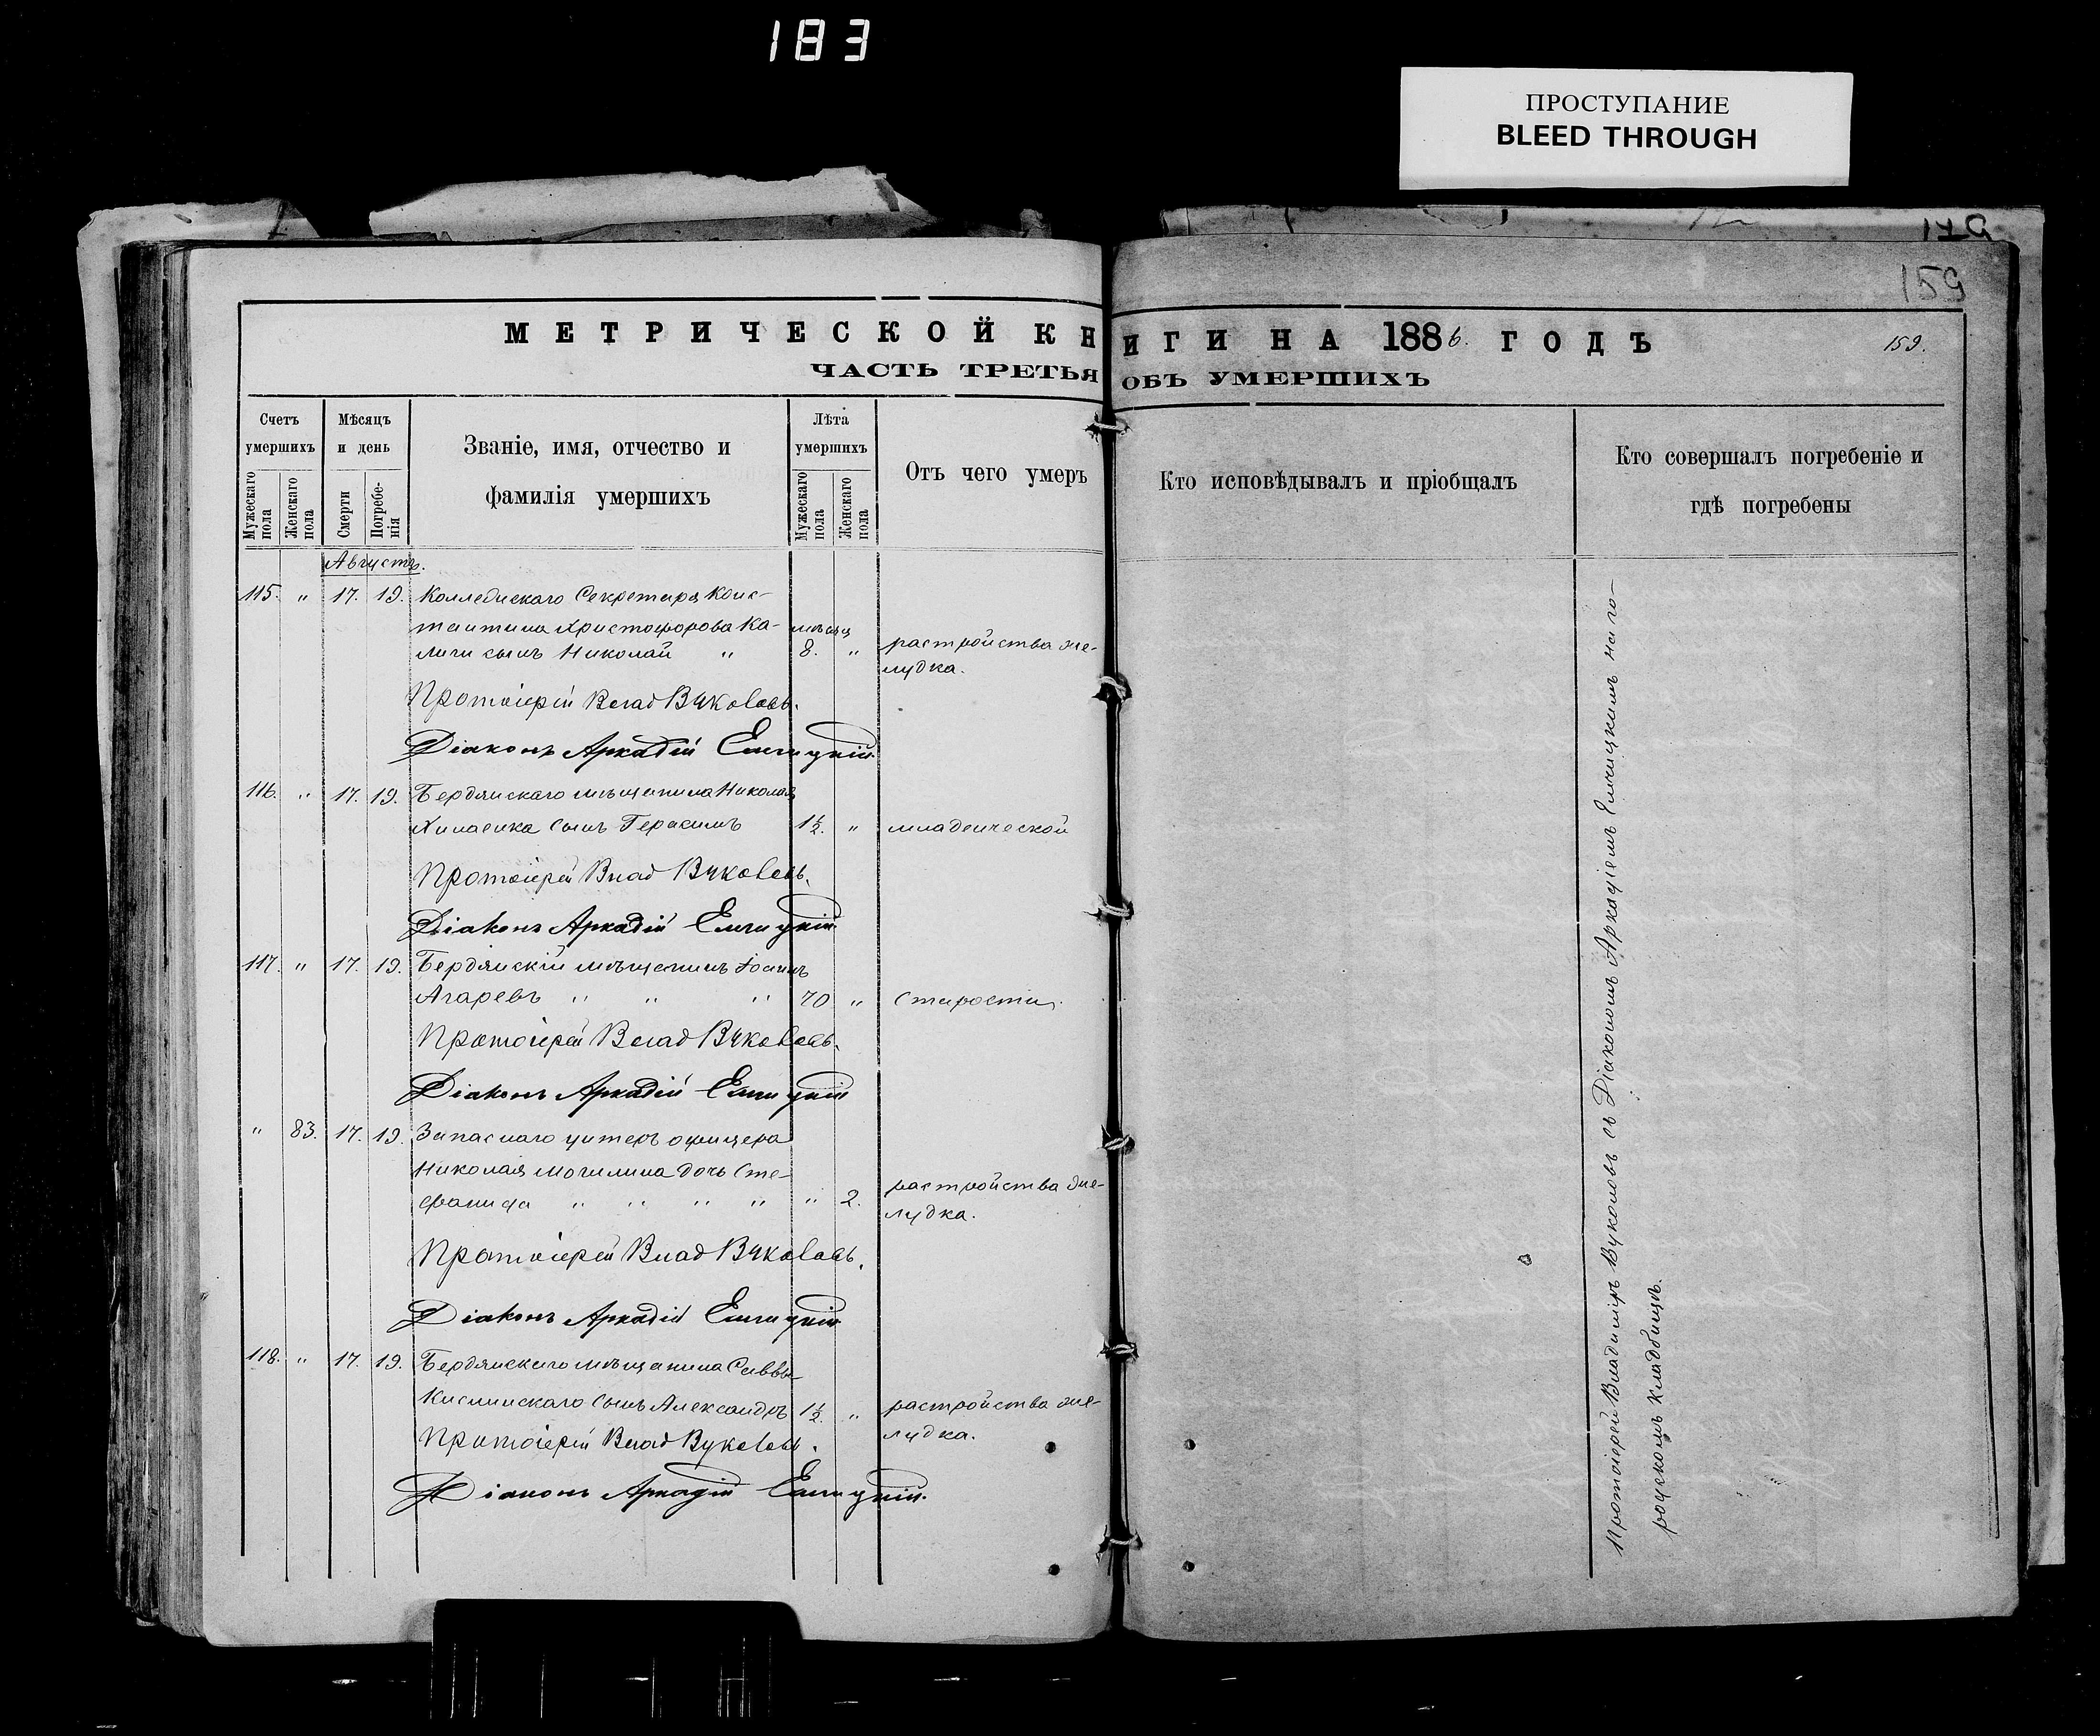 183
ПРОСТУПАНИЕ
BLEED THROUGH
179
159
МЕТРИЧЕСКОЙ КНИГИ НА 1886. ГОДЪ
159.
ЧАСТЬ ТРЕТЬЯ ОБЪ УМЕРШИХЪ
Счетъ умершихъ
Мужескаго пола
Женскаго пола
Мѣсяцъ и день
Смерти
Погребе-нія
Званіе, имя, отчество и
фамилія умершихъ
Лѣта умершихъ
Мужескаго пола
Женскаго пола
Отъ чего умеръ
Кто исповѣдывалъ и пріобщалъ
Кто совершалъ погребеніе и
гдѣ погребены
Августъ.
115. " 17. 19. Коллежскаго Секретаря Конс-
тантина Христофорова Ка- мѣсяц
лиги сынъ Николай " 8. " растройства же-
лудка.
Протоіерей Влад Вуколовъ.
Діаконъ Аркадій
116. " 17. 19. Бердянскаго мѣщанина Николая
сынъ Герасимъ 1½. " младенческой
Протоіерей Влад Вуколовъ.
Діаконъ Аркадій
117. " 17. 19. Бердянскій мѣщанинъ Іоаннъ
Агаревъ " " " 70 " старости.
Протоіерей Влад Вуколовъ.
Діаконъ Аркадій
" 83. 17. 19. Запаснаго унтеръ офицера
Николая Могилина дочь Сте-
фанида " " " " " 2. растройства же-
лудка.
Протоіерей Влад Вуколовъ.
Діаконъ Аркадій
118. " 17. 19. Бердянскаго мѣщанина Саввы
сынъ Александръ 1½. " растройства же-
лудка.
Протоіерей Влад Вуколовъ.
Діаконъ Аркадій
Протоіерей Владиміръ Вуколовъ съ Діакономъ Аркадіемъ на го-
родскомъ кладбищѣ.